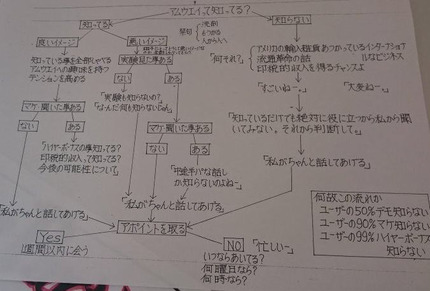 アムウェイって知ってる?
知ってる
知らない
良いイメージ
悪いイメージ
実験見た事ある
禁句
洗剤
人から人へ
知っている事を全部しゃべる
アムウェイへの興味を持つ
テンションを高める
ない
ある
「何それ?」
アメリカの輸入雑貨あつかっているインターナショナル
なビジネス
流通革命の話
印税的収入を得るチャンスよ
「すごいねー。」
「大変ねー。」
「実験も知らないの?
なんだ何も知らないじゃん」
マケ聞いた事ある
ない
ある
マケ聞いた事ある
ない
ある
「知っているだけでも絶対に役に立つから私から聞
いてみない。それから判断して。」
「ハイヤーボーナスの事知ってる?
印税的収入って知ってる?
今後の可能性について」
「中途半パな話し
か知らないのよねー」
「私がちゃんと話してあげる」
「私がちゃんと話してあげる」
「私がちゃんと話してあげる」
アポイントを取る
Yes
1週間以内に会う
NO
「忙しい」
いつならあいてる?
何曜日なら?
何時なら?
何故この流れか
ユーザーの50%デモ知らない
ユーザーの90%マケ知らない
ユーザーの99%ハイヤーボーナス
知らない